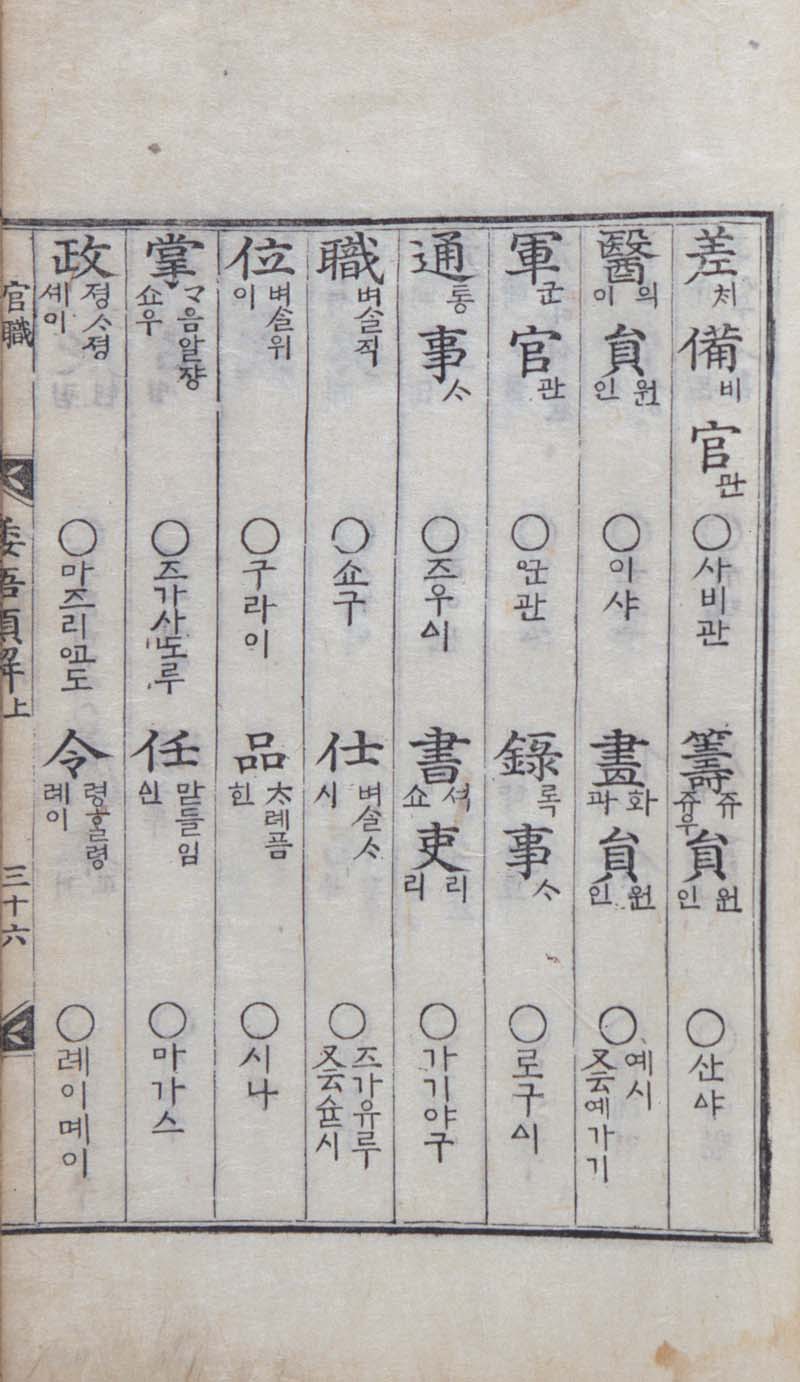 差ᄎᆡ備비官관 ○사비관 籌쥬쥬우員원인 ○산샤
醫의이員원인 ○이샤 畫화과員원인 ○예시 又云예가기
軍군官관 ○ᅌᅮᆫ관 錄록事ᄉᆞ ○로구ᅀᅵ
通통事ᄉᆞ ○즈우ᅀᅵ 書셔쇼吏리리 ○가기야구
職벼슬직 ○쇼구 仕벼슬ᄉᆞ시 ○즈가유루 又云슌시
位벼슬위이 ○구라이 品ᄎᆞ례픔힌 ○시나
掌ᄀᆞ음알쟝쇼우 ○즈가사ᄯᅩ루 任맏들임신 ○마가스
政졍ᄉᆞ졍셰이 ○마즈리ᅌᅩ도 令령ᄒᆞᆯ령례이 ○례이몌이
官職 倭語類解上 三十六